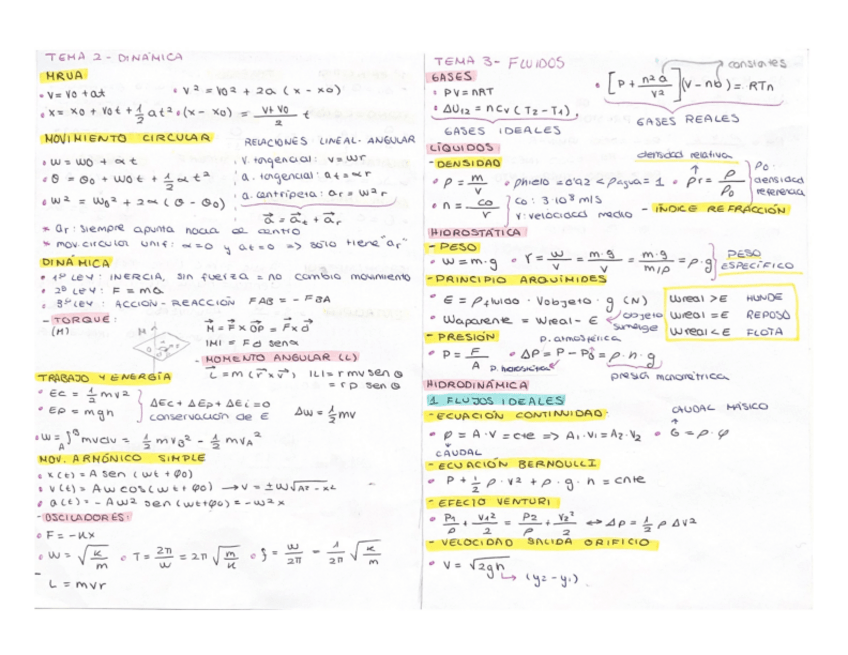 TEMA 2 - DINÁMICA
MRUA
• v = v0 + at • v² = v0² + 2a (x - x0)
• x = x0 + v0t + 1/2 at² • (x - x0) = (v + v0)/2 t
MOVIMIENTO CIRCULAR
RELACIONES LINEAL-ANGULAR
• ω = ω0 + αt
v. tangencial: v = ωr
• θ = θ0 + ω0t + 1/2 αt²
a. tangencial: at = αr
• ω² = ω0² + 2α (θ - θ0)
a. centrípeta: ar = ω²r
a = at + ar
* ar: siempre apunta hacia el centro
* mov. circular unif: α=0 y at=0 => sólo tiene "ar"
DINÁMICA
• 1ª LEY: INERCIA, sin fuerza = no cambio movimiento
• 2ª LEY: F = ma
• 3ª LEY: ACCIÓN - REACCIÓN FAB = - FBA
- TORQUE:
(M)
M
M = F × OP = F × d
|M| = F d senα
- MOMENTO ANGULAR (L)
L = m (r × v) |L| = r mv sen θ
= r p sen θ
TRABAJO Y ENERGÍA
• Ec = 1/2 mv²
• Ep = mgh
ΔEc + ΔEp + ΔEi = 0
conservación de E
Δw = 1/2 mv
• W = ∫AB mvdv = 1/2 mvB² - 1/2 mvA²
MOV. ARMÓNICO SIMPLE
• x(t) = A sen (ωt + φ0)
• v(t) = Aω cos(ωt + φ0) → v = ± ω√A² - x²
• a(t) = - Aω² sen (ωt+φ0) = -ω²x
- OSCILADORES:
• F = -Kx
• ω = √K/m • T = 2π/ω = 2π √m/K • f = ω/2π = 1/2π √K/m
L = mvr
TEMA 3 - FLUIDOS
GASES
• PV = nRT
• ΔU12 = ncv (T2 - T1)
GASES IDEALES
constantes
• [P + n²a/v²](v - nb) = RTn
GASES REALES
LÍQUIDOS
- DENSIDAD
densidad relativa
• ρ = m/v • ρhielo = 0'92 < ρagua = 1 • ρr = ρ/ρ0
ρ0: densidad referencia
• n = c0/v
c0: 3·10⁸ m/s
v: velocidad medio
- ÍNDICE REFRACCIÓN
HIDROSTÁTICA
- PESO
• w = m·g • γ = w/v = m·g/v = m·g/m/ρ = ρ·g
PESO ESPECÍFICO
- PRINCIPIO ARQUÍMIDES
• E = ρfluido · Vobjeto · g (N)
• Waparente = Wreal - E
objeto sumerge
Wreal > E HUNDE
Wreal = E REPOSO
Wreal < E FLOTA
- PRESIÓN
P. atmosférica
• P = F/A • ΔP = P - P0 = ρ·h·g
P. hidrostática
presión manométrica
HIDRODINÁMICA
1 FLUJOS IDEALES
- ECUACIÓN CONTINUIDAD:
CAUDAL MÁSICO
• φ = A·v = cte => A1·v1 = A2·v2 • G = ρ·φ
CAUDAL
- ECUACIÓN BERNOULLI
• P + 1/2 ρ·v² + ρ·g·h = cnte
- EFECTO VENTURI
• P1/ρ + v1²/2 = P2/ρ + v2²/2 ⇔ ΔP = 1/2 ρ Δv²
- VELOCIDAD SALIDA ORIFICIO
• v = √2gh
(y2 - y1)